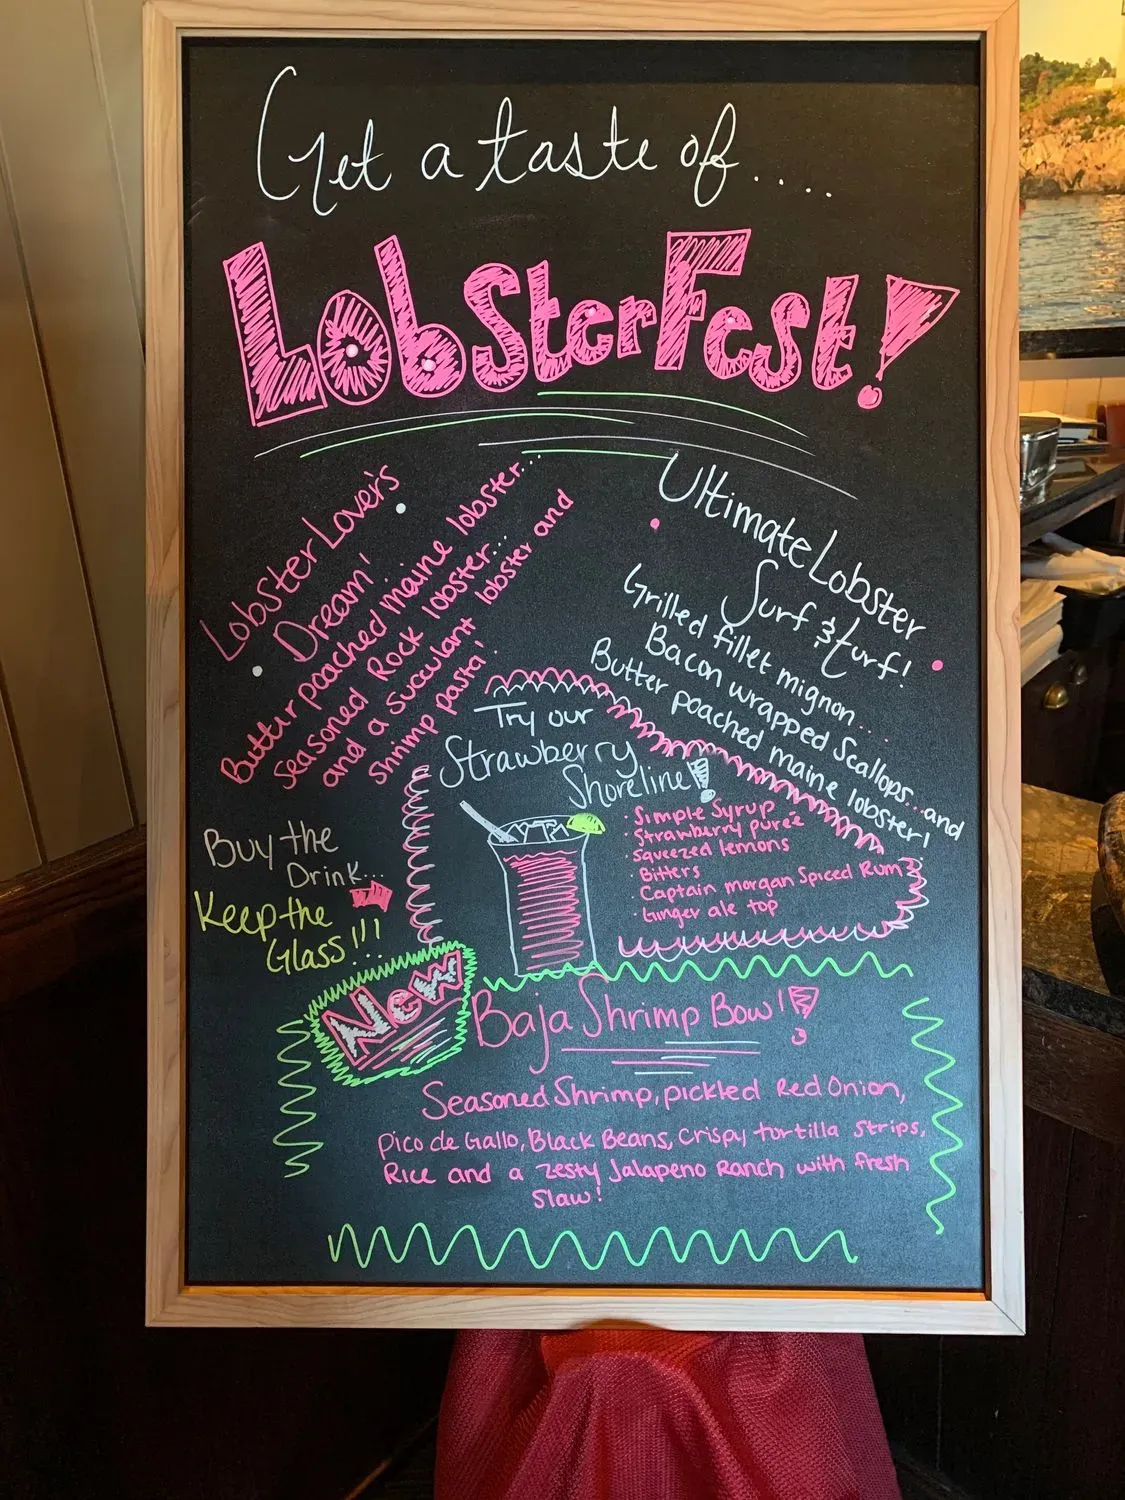 Get a taste of....
LobsterFest!
Lobster Lover's
Dream!
Butter poached maine lobster...
Seasoned Rock lobster...
and a succulant lobster and
shrimp pasta!
Ultimate Lobster
Surf & turf!
Grilled fillet mignon....
Bacon wrapped Scallops...and
Butter poached maine lobster!
Try our
Strawberry
Shoreline!
• Simple Syrup
• Strawberry purée
• squeezed lemons
Bitters
• Captain morgan Spiced Rum
• Ginger ale top
Buy the
Drink...
Keep the
Glass!!!
New
Baja Shrimp Bowl!
Seasoned Shrimp, pickled Red Onion,
Pico de Gallo, Black Beans, Crispy tortilla strips,
Rice and a zesty Jalapeno Ranch with fresh
Slaw!